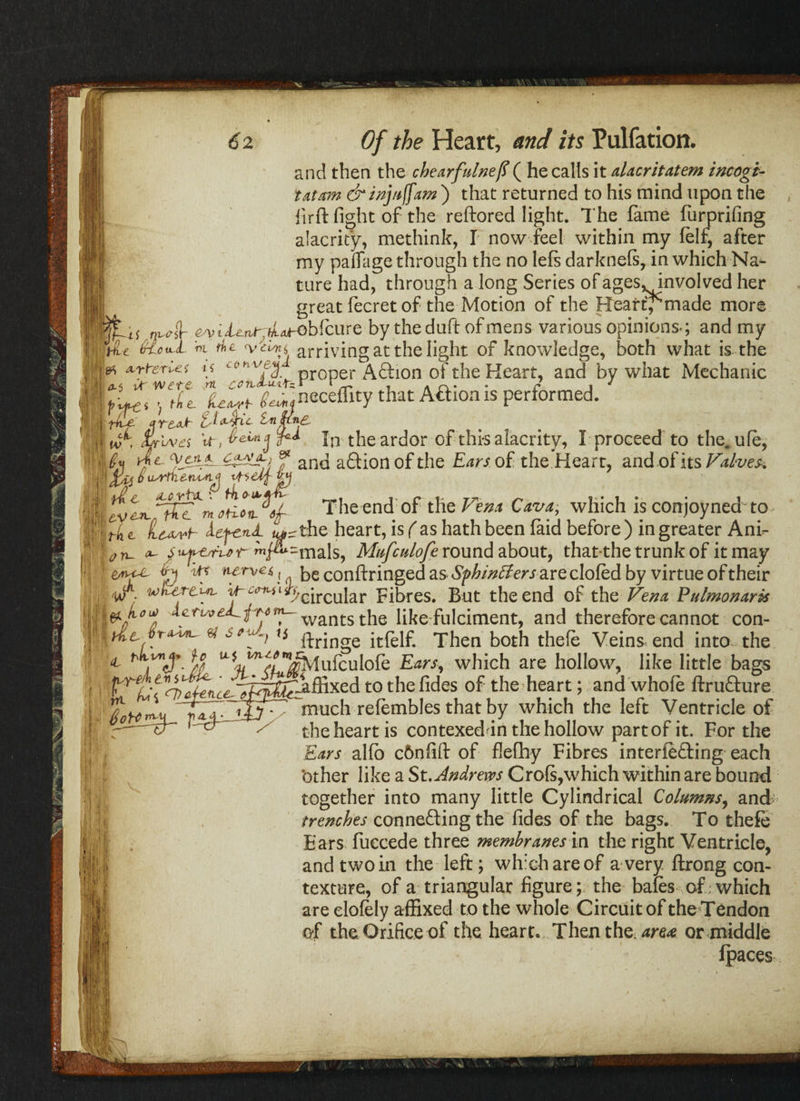 62 Of the Heart, and its Pulsation.
and then the chearfulneſs ( he calls it alacritatem incogi-
tatam & injuſſam ) that returned to his mind upon the
firſt ſight of the reſtored light. The ſame ſurpriſing
alacrity, methink, I now feel within my ſelf, after
my paſſage through the no leſs darkneſs, in which Na-
ture had, through a long Series of ages, involved her
great ſecret of the Motion of the Heart,* made more
obſcure by the duſt of mens various opinions; and my
arriving at the light of knowledge, both what is the
proper Action of the Heart, and by what Mechanic
neceſſity that Action is performed.
In the ardor of this alacrity, I proceed to the uſe,
and action of the Ears of the Heart, and of its Valves.
The end of the Vena Cava, which is conjoyned to
the heart, is ( as hath been ſaid before ) in greater Ani-
mals, Muſculoſe round about, that the trunk of it may
be conſtringed as Sphincters are cloſed by virtue of their
circular Fibres. But the end of the Vena Pulmonaris
wants the like fulciment, and therefore cannot con-
ſtringe itſelf. Then both theſe Veins end into the
Muſculoſe Ears, which are hollow, like little bags
affixed to the ſides of the heart; and whoſe ſtructure
much reſembles that by which the left Ventricle of
the heart is contexed in the hollow part of it. For the
Ears alſo conſiſt of fleſhy Fibres interſecting each
other like a St. Andrews Croſs, which within are bound
together into many little Cylindrical Columns, and
trenches connecting the ſides of the bags. To theſe
Ears ſuccede three membranes in the right Ventricle,
and two in the left; which are of a very ſtrong con-
texture, of a triangular figure; the baſes of which
are cloſely affixed to the whole Circuit of the Tendon
of the Orifice of the heart. Then the areæ or middle
ſpaces
*
'Tis most evident, that
the bloud in the veins
& arteries is convey'd
as it were in conduit=
pipes ; the heart being
the great Elastic Engine
wch. drives it, being fed
by the Vena cava, &
burthening itself by
the aorta : though
even the motion of
the heart depend up=
on a superior influ=
ence by its nerves,
wherein it consists,
& how derived from
the brain & soul, is
a thing to us incom=
prehensible. H. Stubbe
in his Defence of
pag. 147.